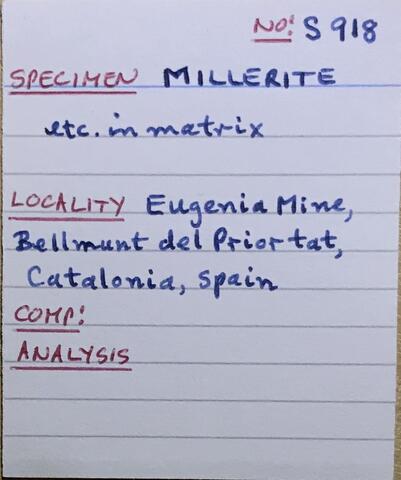 No: S 918
SPECIMEN MILLERITE
etc. in matrix
LOCALITY Eugenia Mine,
Bellmunt del Priortat,
Catalonia, Spain
COMP:
ANALYSIS